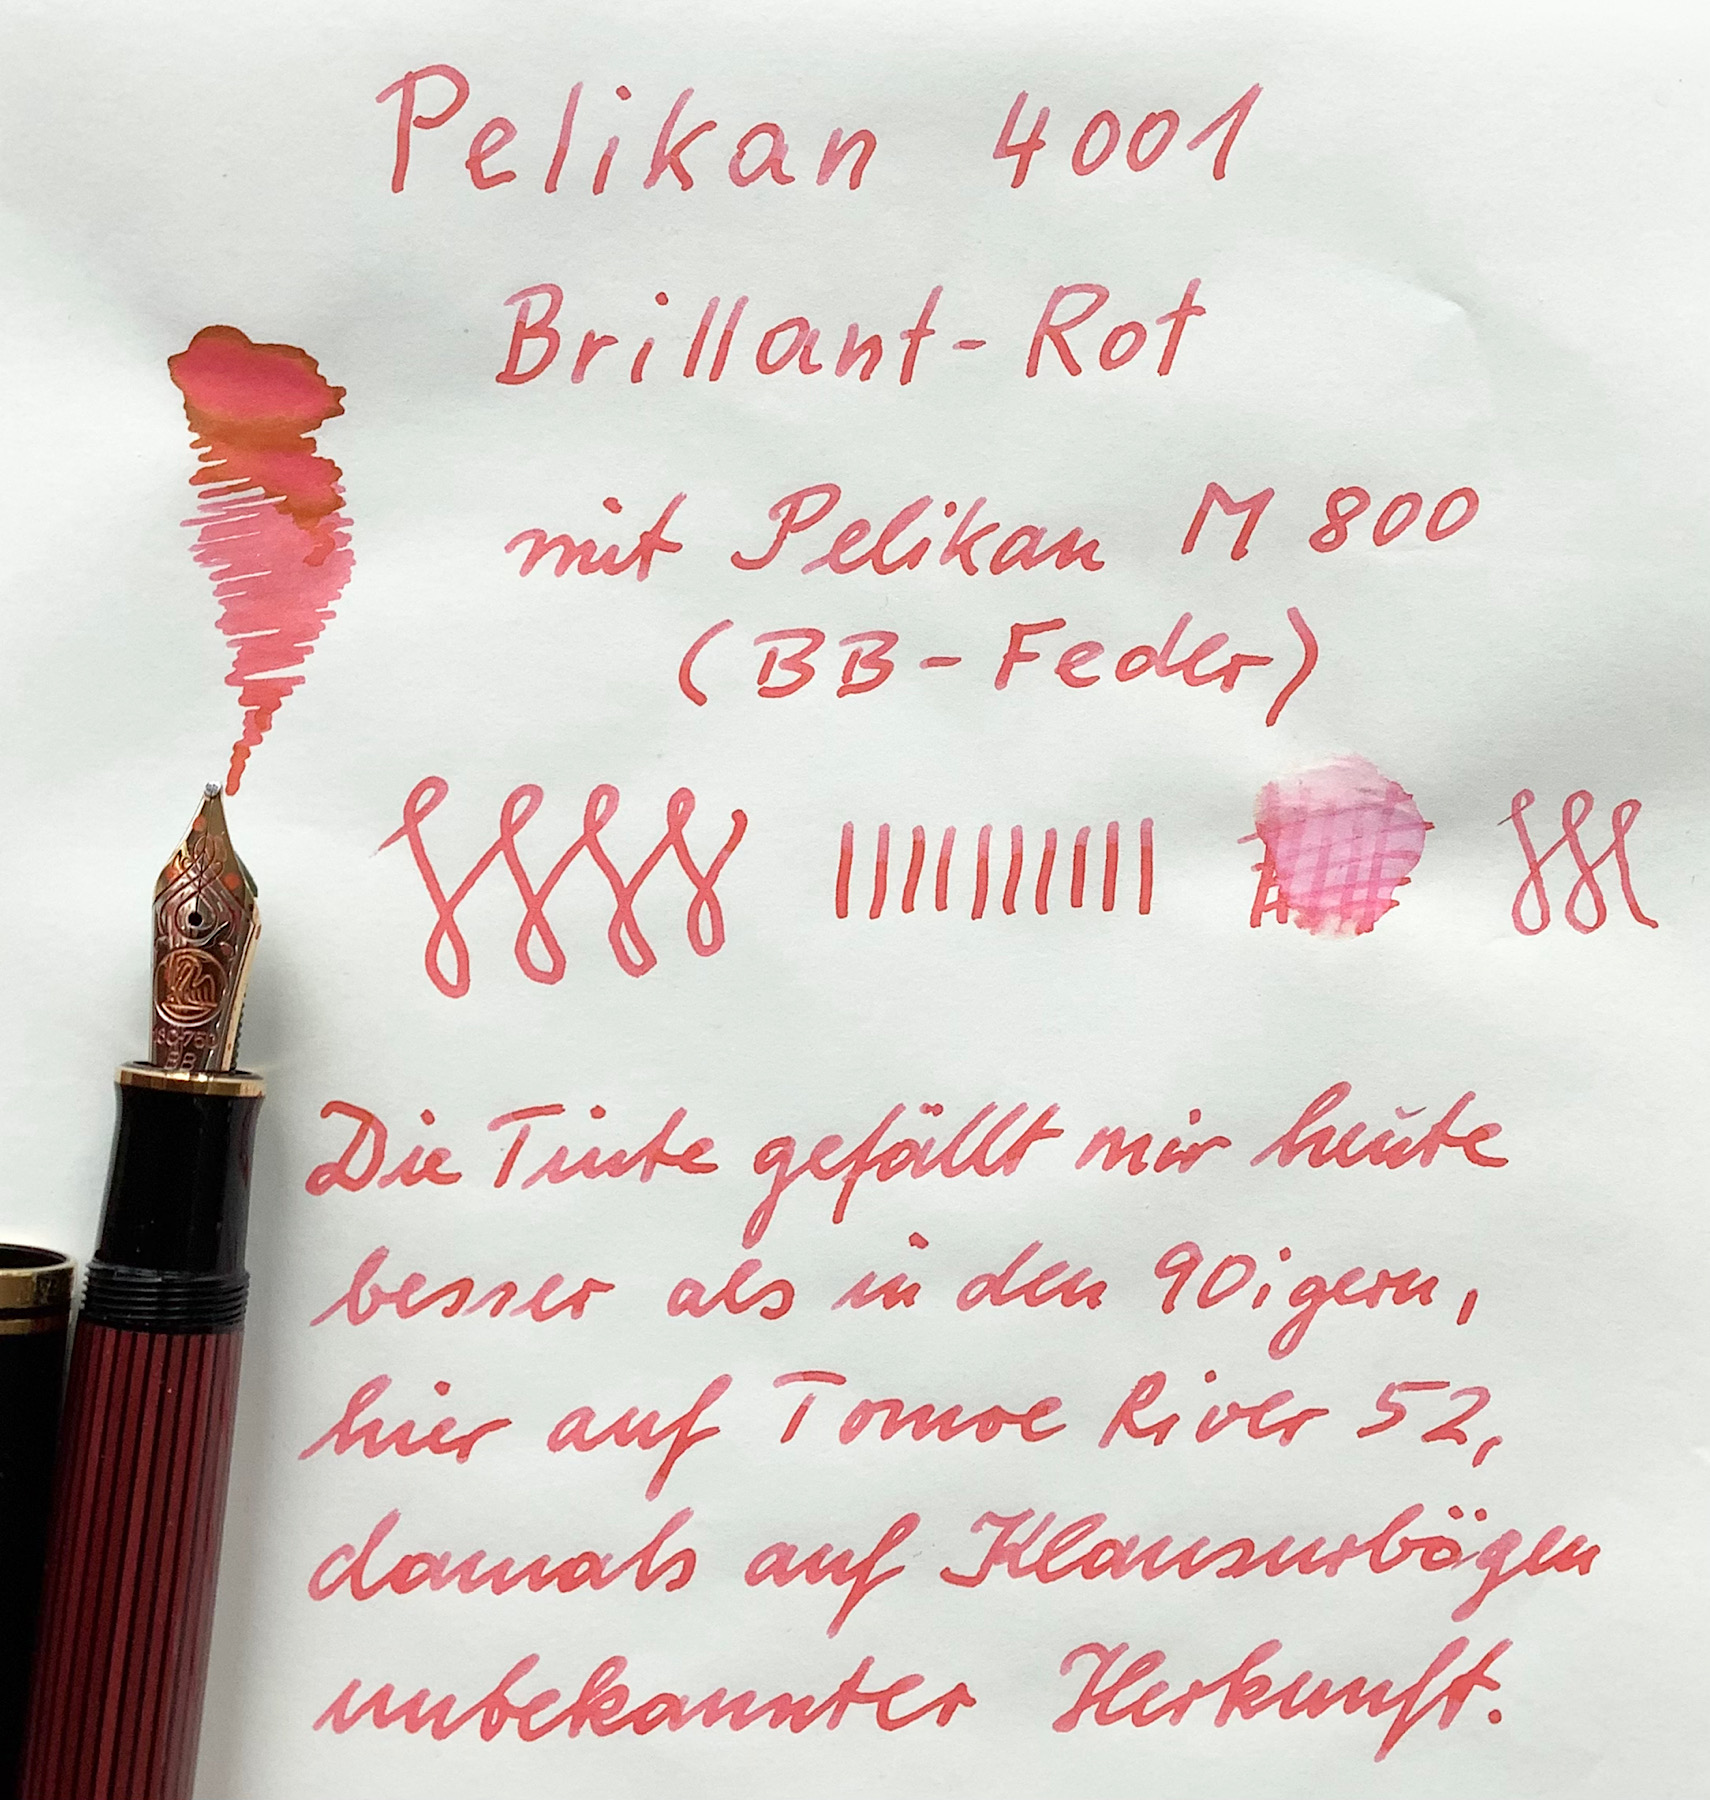 Pelikan 4001
Brillant-Rot
mit Pelikan M 800
(BB-Feder)
18C-750
BB
Die Tinte gefällt mir heute
besser als in den 90igern,
hier auf Tomoe River 52,
damals auf Klausurbögen
unbekannter Herkunft.